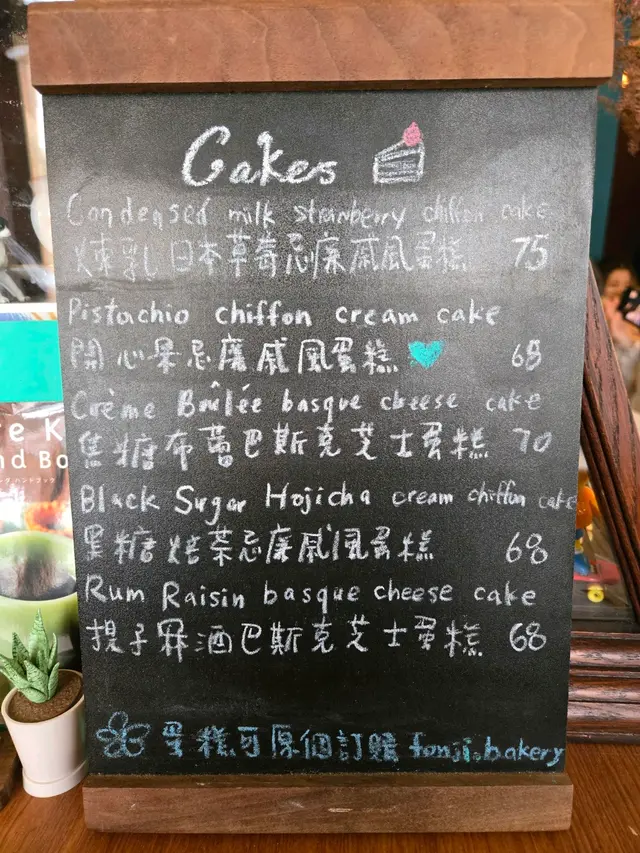 Cakes
Condensed milk strawberry chiffon cake
煉乳日本草莓忌廉戚風蛋糕 75
Pistachio chiffon cream cake
開心果忌廉戚風蛋糕 68
Crème Brûlée basque cheese cake
焦糖布蕾巴斯克芝士蛋糕 70
Black Sugar Hojicha cream chiffon cake
黑糖焙茶忌廉戚風蛋糕 68
Rum Raisin basque cheese cake
提子冧酒巴斯克芝士蛋糕 68
蛋糕可原個訂購 fonji.bakery